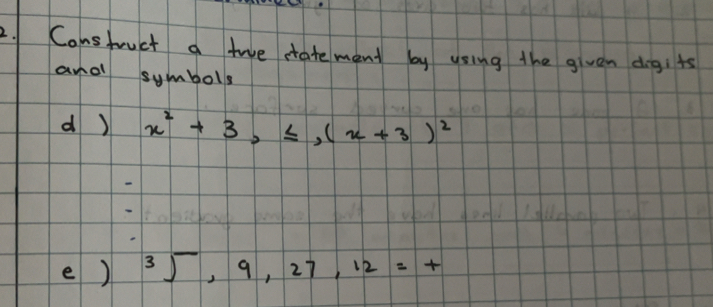 2. Construct a true statement by using the given digits
and symbols
d) x² + 3, ≤, (x + 3)²
e) ³√‾, 9, 27, 12 = +